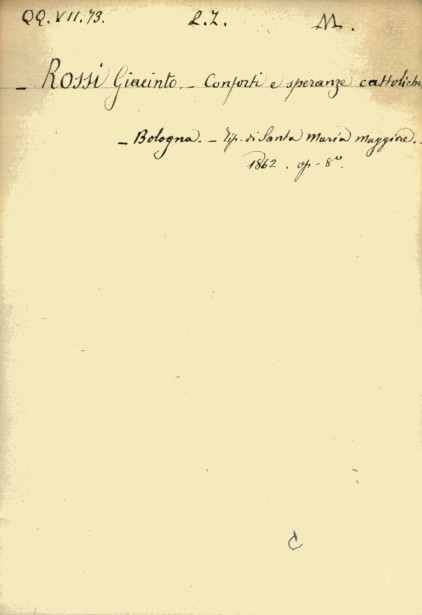 QQ. VII. 73. L.Z. M.
— Rossi Giacinto. — Conforti e speranze cattoliche
— Bologna. — Tip. di Santa Maria Maggiore. —
1862. op - 8°.
C